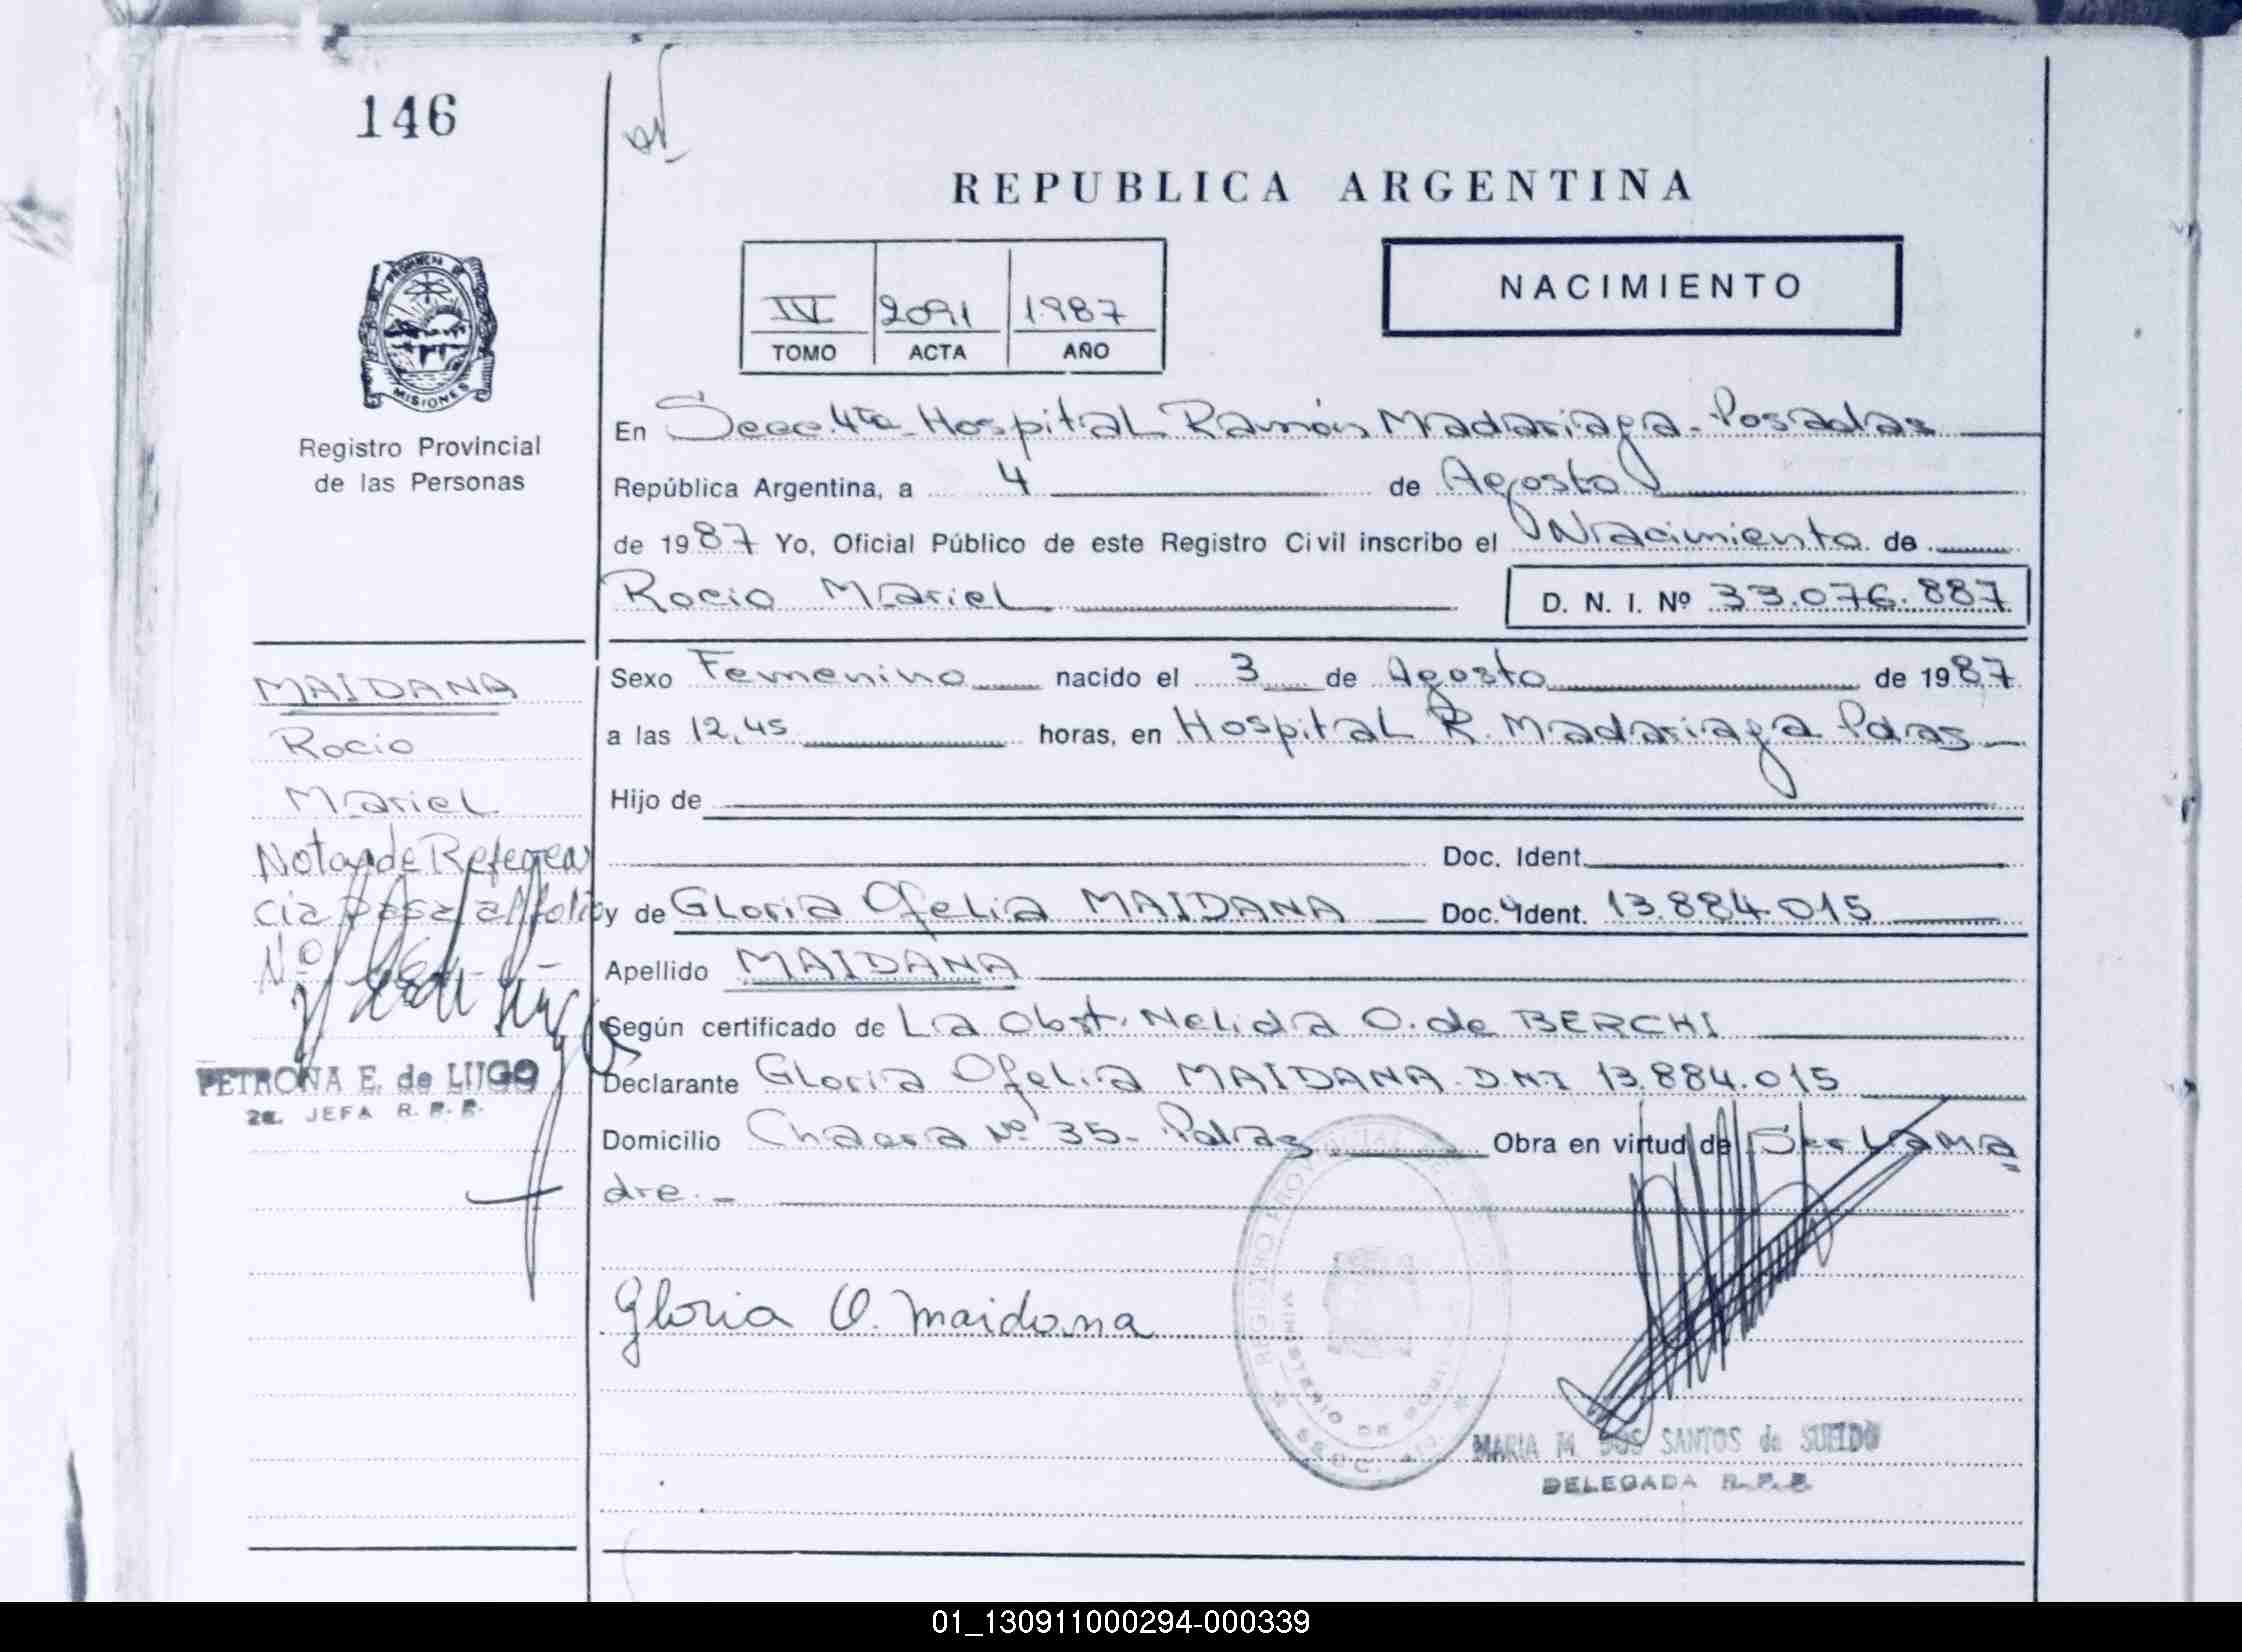 146
REPUBLICA ARGENTINA
IV 2091 1987
TOMO ACTA AÑO
NACIMIENTO
PROVINCIA DE
MISIONES
Registro Provincial
de las Personas
En Secc. 4ta - Hospital Ramón Madariaga - Posadas
República Argentina, a 4 de Agosto
de 1987 Yo, Oficial Público de este Registro Civil inscribo el Nacimiento de
Rocio Mariel D. N. I. Nº 33.076.887
MAIDANA
Rocio
Mariel
Nota de Referen
cia pasa al folio
Nº
PETRONA E. de LUGO
2a. JEFA R. P. P.
Sexo Femenino nacido el 3 de Agosto de 1987
a las 12,45 horas, en Hospital R. Madariaga Pdas
Hijo de
Doc. Ident.
y de Gloria Ofelia MAIDANA Doc. Ident. 13.884.015
Apellido MAIDANA
Según certificado de La Obst. Nelida O. de BERCHI
Declarante Gloria Ofelia MAIDANA D.N.I 13.884.015
Domicilio Chacra Nº 35 - Pdas Obra en virtud de Ser La ma
dre. -
Gloria O. Maidana
REGISTRO PROVINCIAL
MINISTERIO DE
MARIA M. DOS SANTOS de SUELDO
DELEGADA R. P. P.
01_130911000294-000339